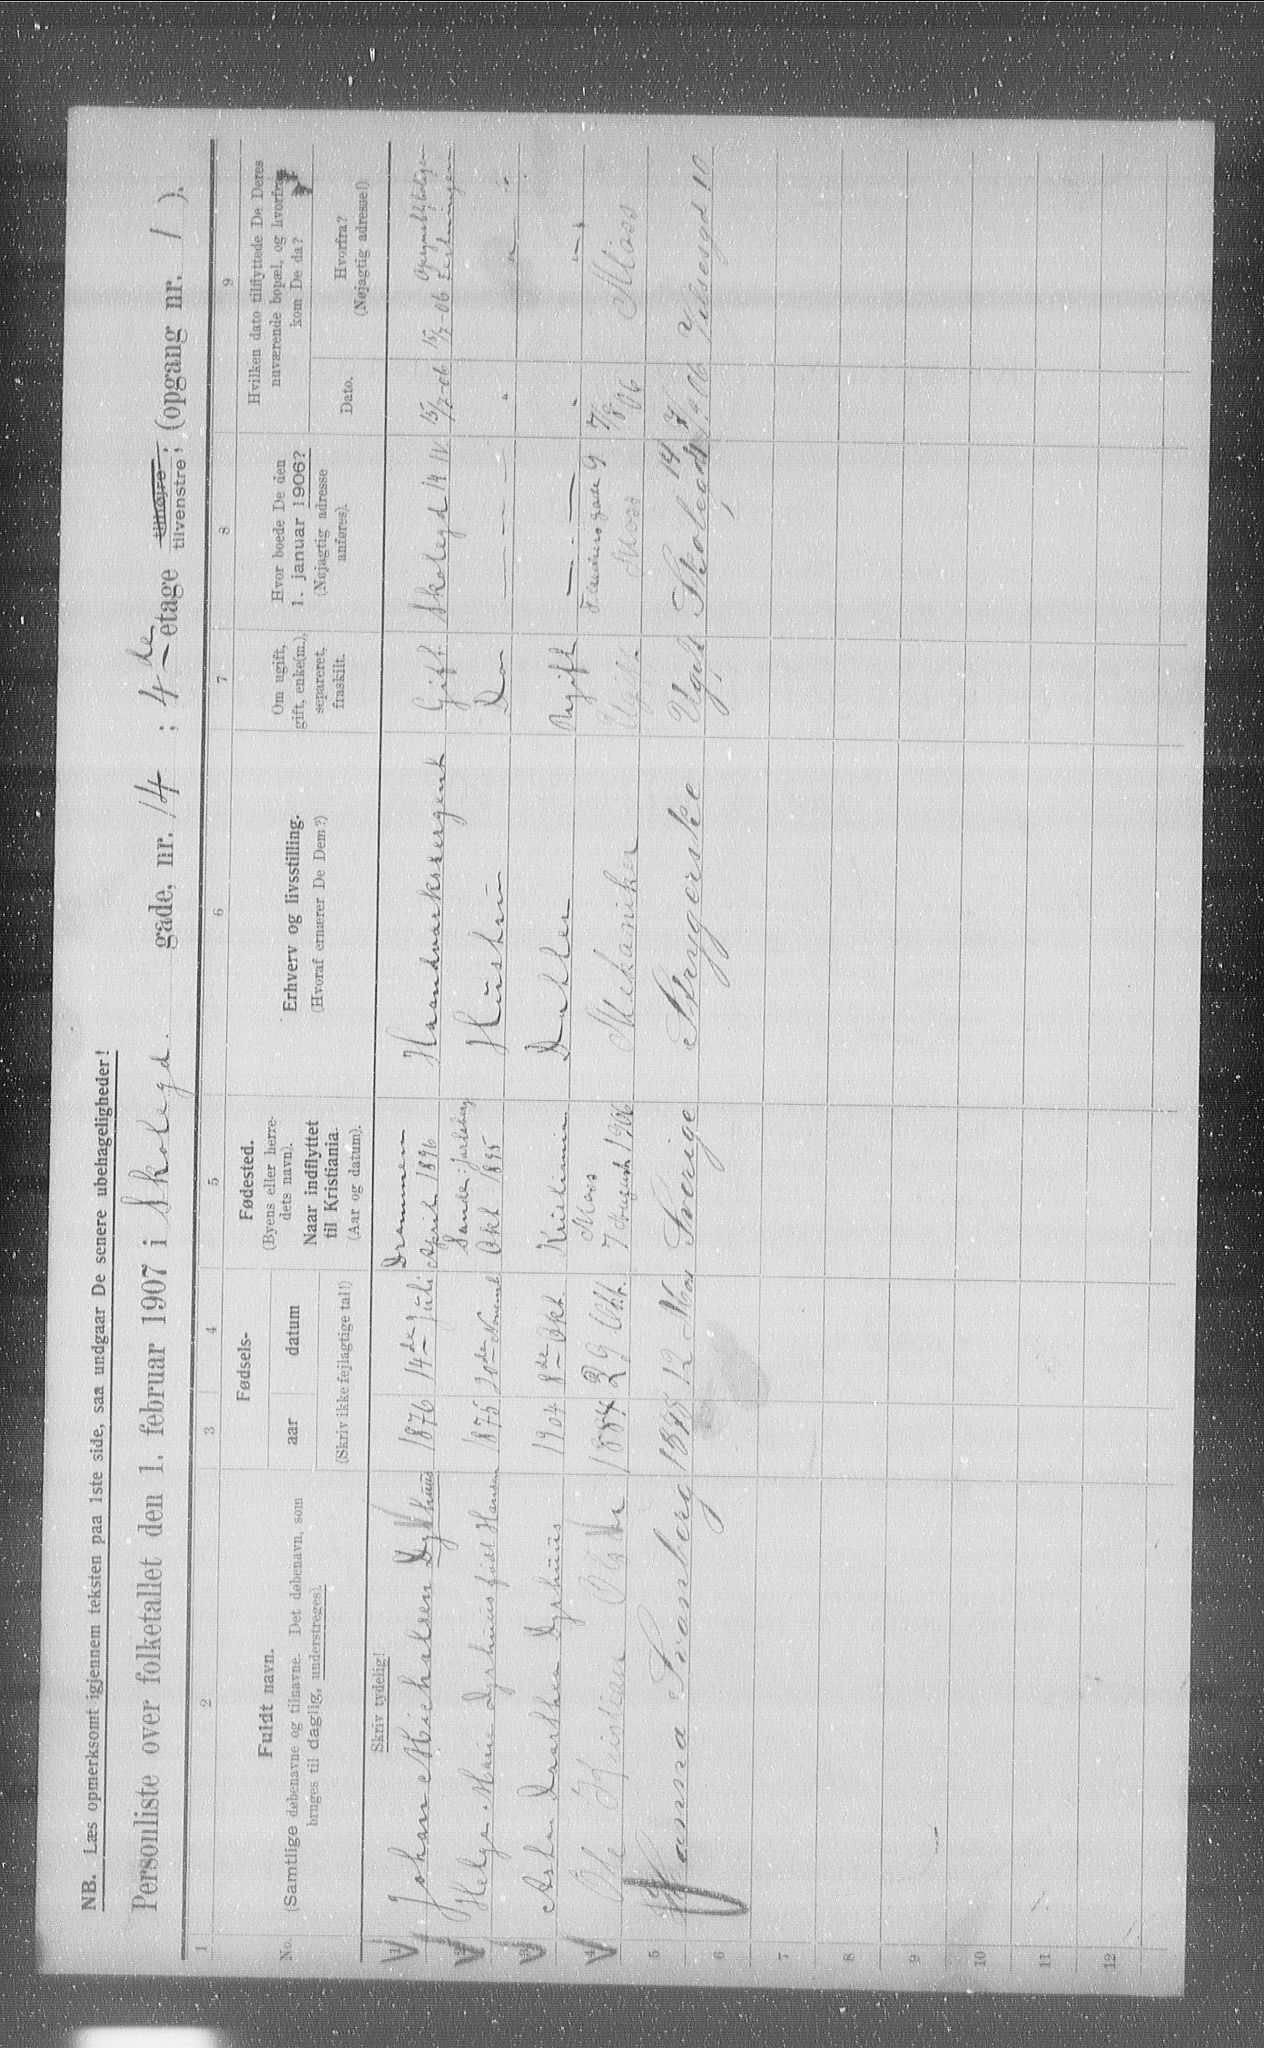 NB. Læs opmerksomt igjennem teksten paa 1ste side, saa undgaar De senere ubehageligheder!
Personliste over folketallet den 1. februar 1907 i Skolegd. gade, nr. 14 ; 4de etage tilhøjre, tilvenstre, (opgang nr. 1 ).
1 2 3 4 5 6 7 8 9
No.
Fuldt navn.
(Samtlige døbenavne og tilnavne. Det døbenavn, som
bruges til daglig, understreges).
Fødsels-
aar datum
(Skriv ikke fejlagtige tal!)
Fødested.
(Byens eller herre-
dets navn).
Naar indflyttet
til Kristiania.
(Aar og datum).
Erhverv og livsstilling.
(Hvoraf ernærer De Dem?)
Om ugift,
gift, enke(m.),
separeret,
fraskilt.
Hvor boede De den
1. januar 1906?
(Nøjagtig adresse
anføres).
Hvilken dato tilflyttede De Deres
nuværende bopæl, og hvorfra
kom De da?
Dato.
Hvorfra?
(Nøjagtig adresse!)
Skriv tydelig!
1 Johan Michalsen Dyrhuus 1876 14de Juli Drammen April 1896 Haandværkssergent Gift Skolegd 14 IV 15/7-06 15/7-06
2 Helga Marie Dyrhuus født Hansen 1875 20de Novemb Sande i Jarlsberg Okt 1895 Hustru Do — " — " — " —
3 Asta Daarthea Dyrhuus 1904 8de Okt. Kristiania Datter Ugift — " — " — " —
4 Ole Kristian 1884 29 Okt. Moss 7 August 1906 Mekaniker Ugift 9 Moss 7/8 06 Moss
5 Hanna Svanberg 1878 12 Nov Sverige Strygerske Ugift Skolegd 14 10
6
7
8
9
10
11
12